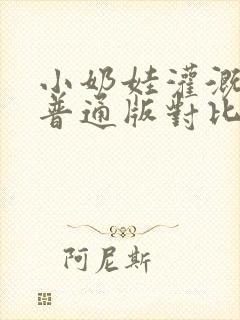 小奶娃灌溉
普通版對比
阿尼斯